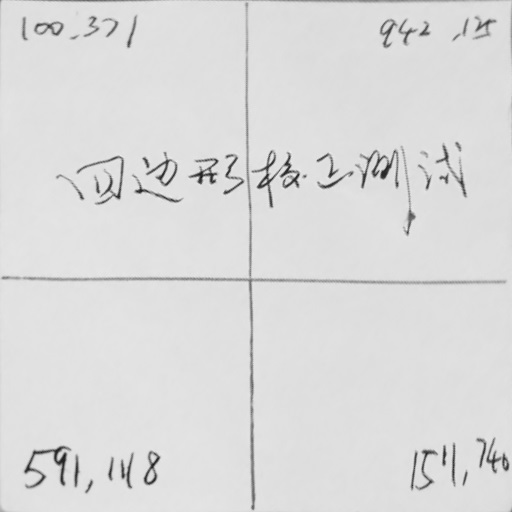 100,371
942,125
四边形校正测试
591,1118
1511,740